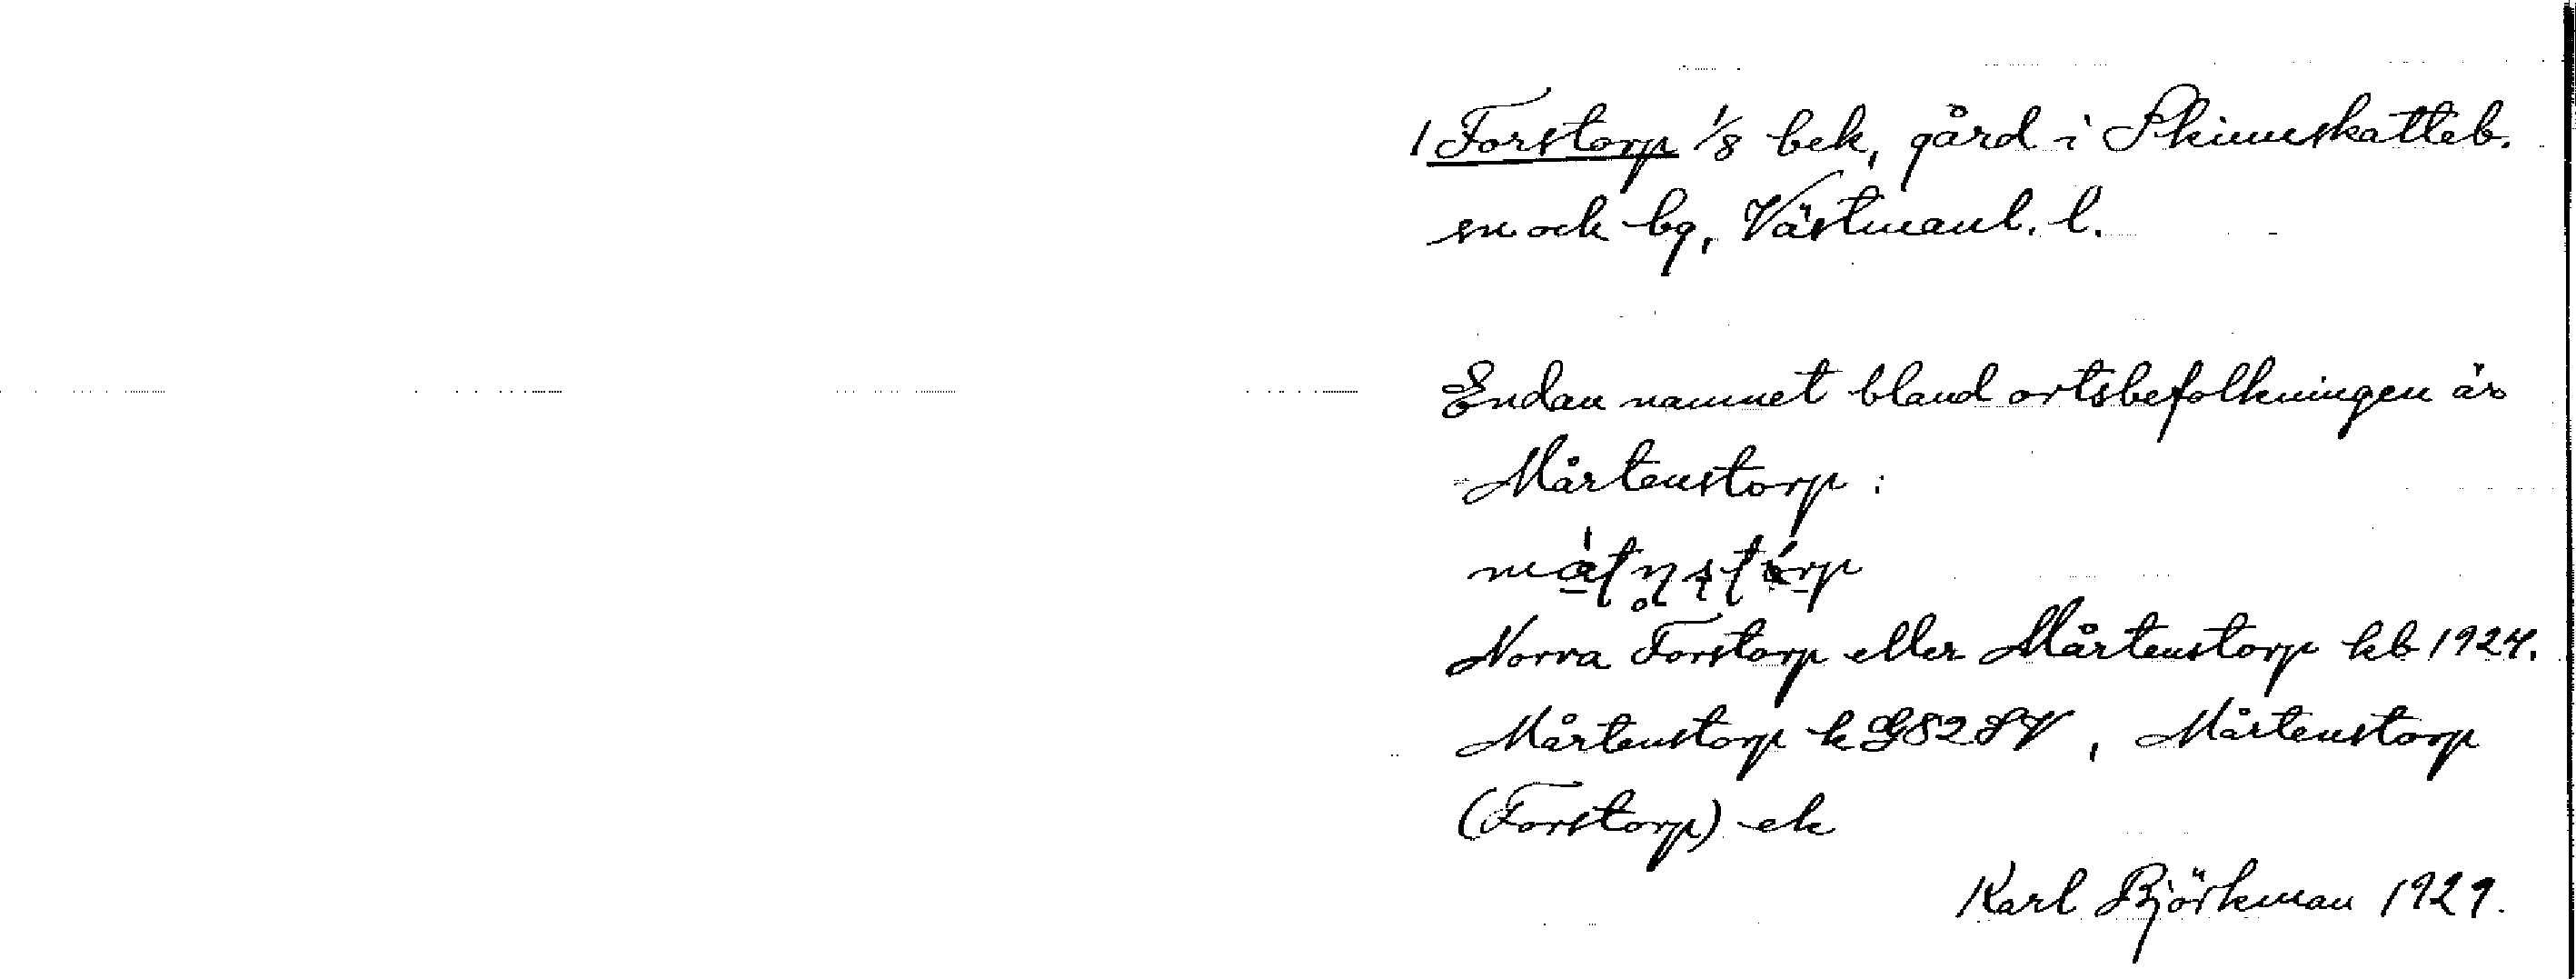 1 Forstorp 1/8 bek, gård i Skinnskatteb.
sn och bg, Västmanl. l.
Endan namnet bland ortsbefolkningen är
Mårtenstorp:
Norra Forstorp eller Mårtenstorp kb 1924.
Mårtenstorp k G82SV, Mårtenstorp
(Forstorp) ek
Karl Björkman 1929.